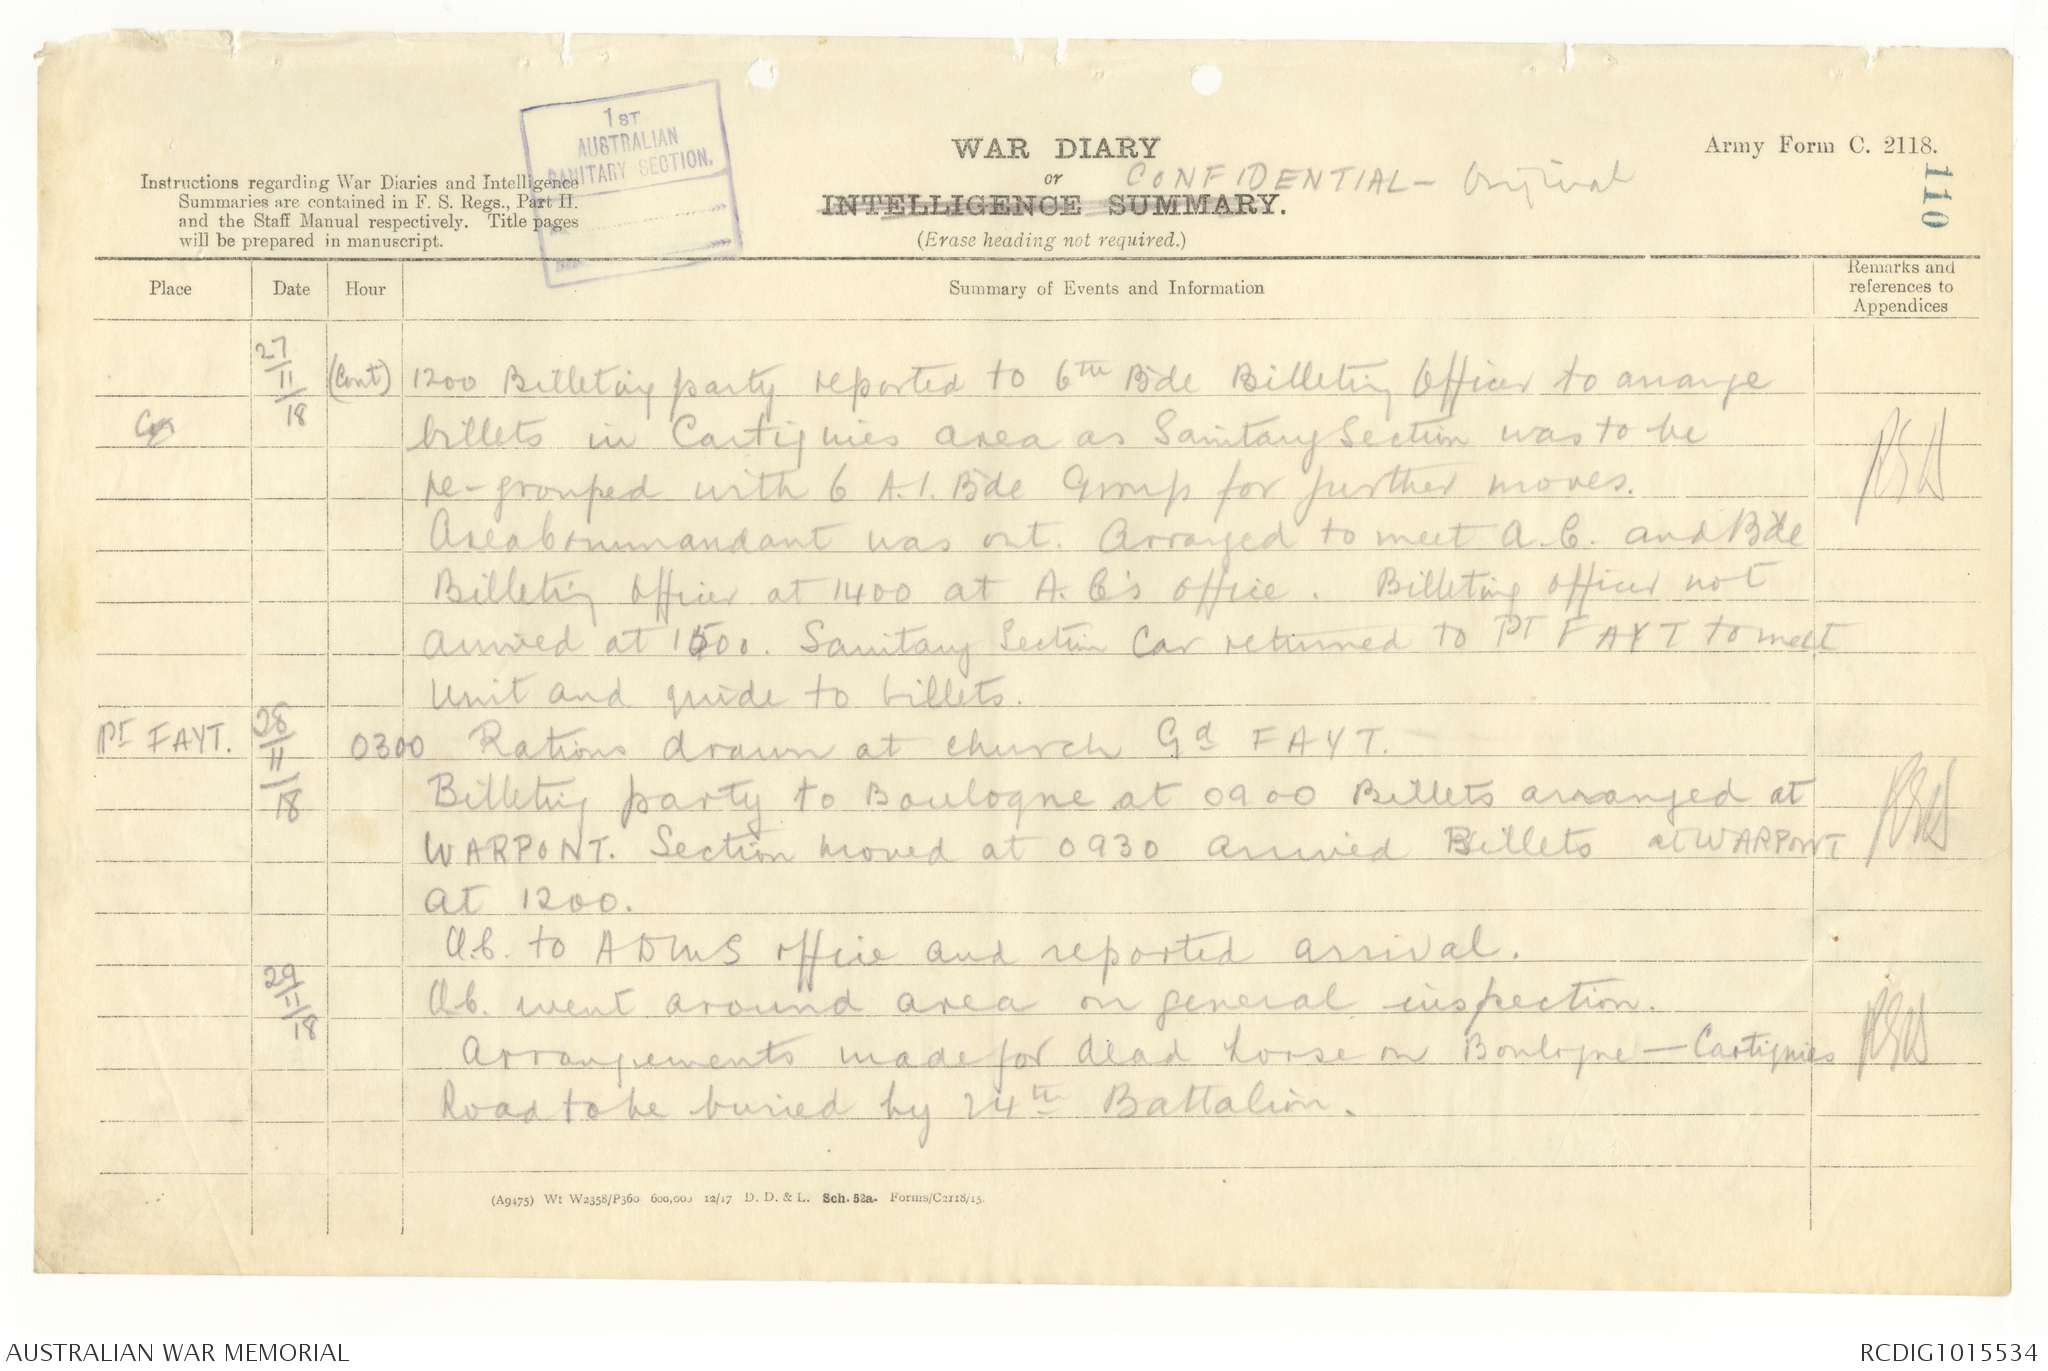 1ST
AUSTRALIAN
SANITARY SECTION.
WAR DIARY
or
INTELLIGENCE SUMMARY.
(Erase heading not required.)
CONFIDENTIAL - Original
Army Form C. 2118.
110
Instructions regarding War Diaries and Intelligence
Summaries are contained in F. S. Regs., Part II.
and the Staff Manual respectively. Title pages
will be prepared in manuscript.
Place Date Hour Summary of Events and Information Remarks and references to Appendices
27/11/18 (Cont) 1200 Billeting party reported to 6th Bde Billeting Officer to arrange
billets in Cartignies area as Sanitary Section was to be
re-grouped with 6 A.I. Bde Group for further moves.
Area Commandant was out. Arranged to meet A.C. and Bde
Billeting Officer at 1400 at A.C's office. Billeting officer not
arrived at 1500. Sanitary Section Car returned to PT FAYT to meet
Unit and guide to billets.
PT FAYT. 28/11/18 0300 Rations drawn at church Gd FAYT.
Billeting party to Boulogne at 0900 Billets arranged at
WARPONT. Section moved at 0930 arrived Billets at WARPONT
at 1200.
O.C. to ADMS office and reported arrival.
29/11/18 O.C. went around area on general inspection.
Arrangements made for dead horse on Boulogne - Cartignies
Road to be buried by 24th Battalion.
(A9475) Wt W2358/P360 600,000 12/17 D. D. & L. Sch. 52a. Forms/C2118/15.
AUSTRALIAN WAR MEMORIAL
RCDIG1015534